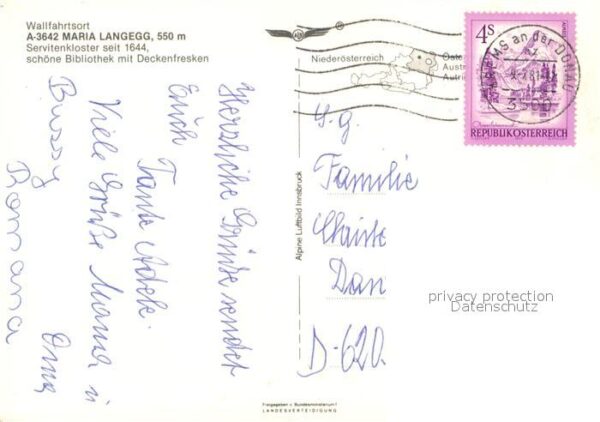 Wallfahrtsort
A-3642 MARIA LANGEGG, 550 m
Servitenkloster seit 1644,
schöne Bibliothek mit Deckenfresken
Niederösterreich
4S
REPUBLIK ÖSTERREICH
KREMS an der DONAU
3500
Herzliche Grüße sendet
Euch
Tante Adele.
Viele Grüße Mama u
Oma
Bussy
Romana
Alpine Luftbild Innsbruck
S.g.
Familie
Christe
Dan
D-620.
privacy protection
Datenschutz
Freigegeben v. Bundesministerium f.
LANDESVERTEIDIGUNG